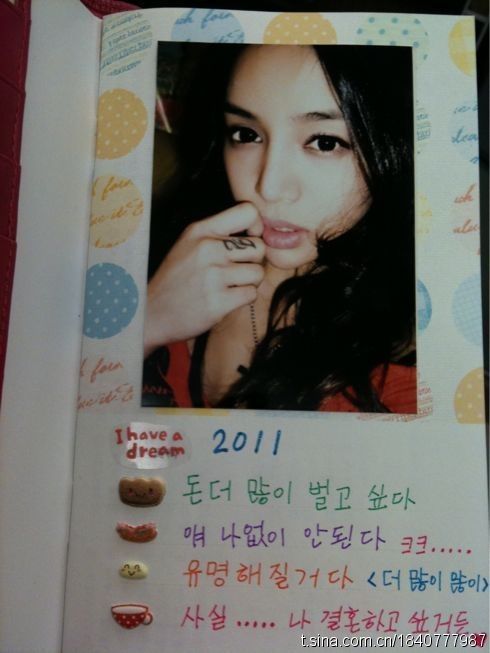 I have a dream 2011
돈더 많이 벌고 싶다
얘 나없이 안된다 크크.....
유명해질거다 <더 많이 많이>
사실 ..... 나 결혼하고 싶거등
t.sina.com.cn/1840777987